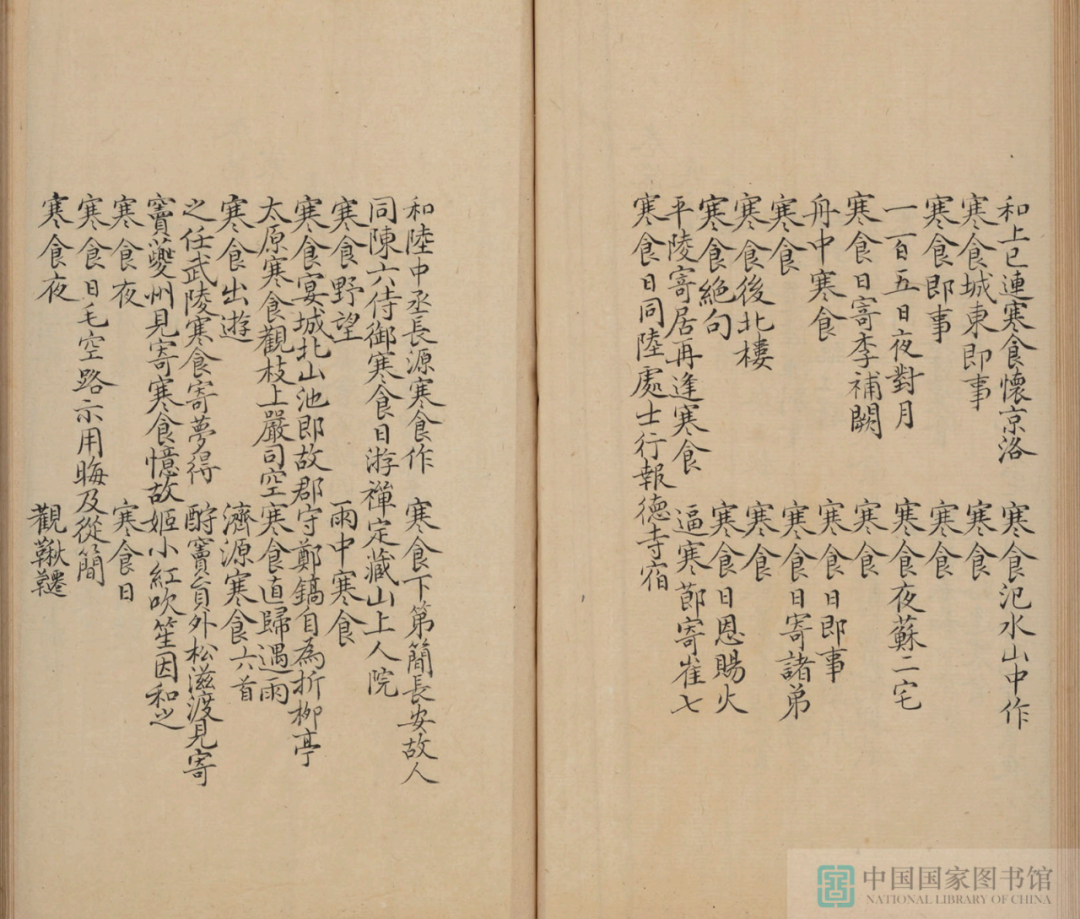 和上巳連寒食懷京洛 寒食氾水山中作
寒食城東即事 寒食
寒食即事 寒食
一百五日夜對月 寒食夜蘇二宅
寒食日寄李補闕 寒食
舟中寒食 寒食日即事
寒食 寒食日寄諸弟
寒食後北樓 寒食
寒食絕句 寒食日恩賜火
平陵寄居再逢寒食 逼寒莭寄崔七
寒食日同陸處士行報德寺宿
和陸中丞長源寒食作 寒食下第簡長安故人
同陳六侍御寒食日游禪定藏山上人院
寒食野望 雨中寒食
寒食宴城北山池即故郡守鄭鎬自為折柳亭
太原寒食觀枝上嚴司空 寒食直歸遇雨
寒食出遊 濟源寒食六首
之任武陵寒食寄夢得 酧竇員外松滋渡見寄
竇夔州見寄寒食憶故姬小紅吹笙因和之
寒食夜 寒食日
寒食日毛空路示用晦及從簡
寒食夜 觀鞦韆
中国国家图书馆
NATIONAL LIBRARY OF CHINA